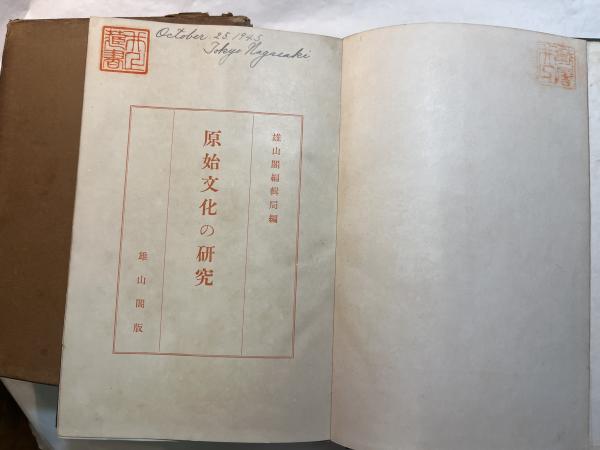 October 25. 1945
Tokyo Nagasaki
雄山閣編輯局編
原始文化の研究
雄山閣版